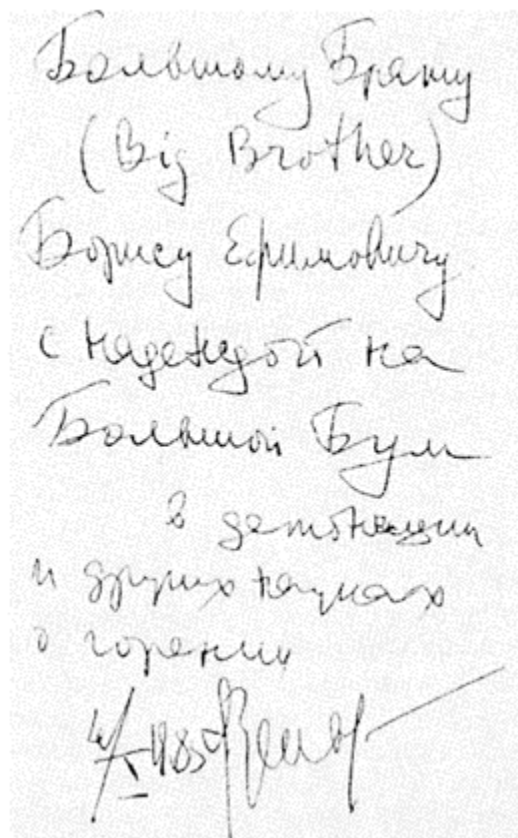 Большому Брату
(Big Brother)
Борису Ефимовичу
с надеждой на
Большой Бум
в детонации
и других науках
о горении
1985